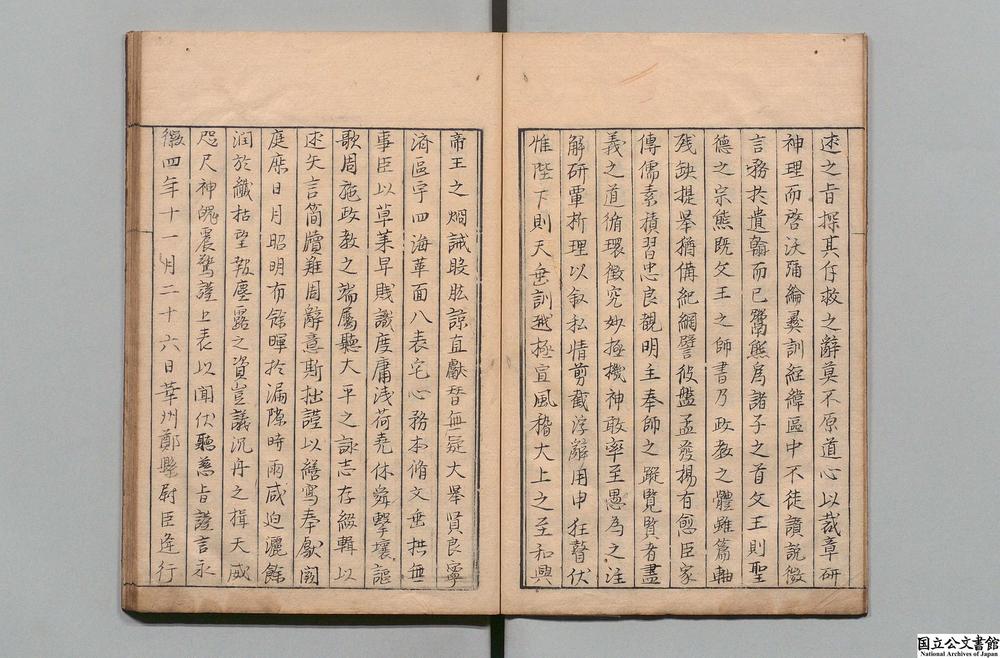 述之旨探其仔救之辭莫不原道心以裁章研
神理而啓沃彌綸彝訓経緯區中不徒讃説微
言務於遺翰而已鬻熊爲諸子之首文王則聖
德之宗熊既文王之師書乃政敎之體雖篇軸
残缺提舉猶備紀綱譬彼盤盂發揚有愈臣家
傳儒素積習忠良覩明主奉師之蹤覧賢者盡
義之道循環徵究妙極機神敢率至愚為之注
解研覃析理以叙私情剪截浮辭用申狂瞽伏
惟陛下則天垂訓趍極宣風稽大上之至和興
帝王之炯誡股肱諒直獻替無疑大舉賢良寧
済區宇四海革面八表宅心務本脩文垂拱無
事臣以草莱卑賎識度庸浅荷堯休舜擊壤謳
歌周施政教之端属聽大平之詠志存綴輯以
述矢言簡牘雖周辭意斯拙謹以繕寫奉獻闕
庭庶日月昭明布餘暉於漏隙時雨咸迫灑餘
潤於纖枯望報塵露之資豈議沉舟之揖天威
咫尺神魄震驚謹上表以聞伏聽慈旨謹言永
徽四年十一月二十六日華州鄭縣尉臣逄行
国立公文書館
National Archives of Japan